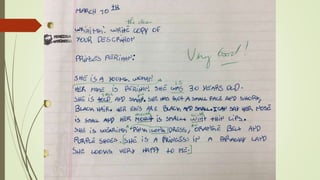 MARCH 10th
the clean
WRITING: WRITE COPY OF
YOUR DESCRIPTION
Very Good!
PRINCESS
SHE IS A YOUNG WOMAN.
is
HER NAME IS 30 YEARS OLD.
SHE IS AND SHE HAS GOT A SMALL FACE AND SHORT,
BLACK HAIR. HER EYES ARE BLACK AND SMALL. HER NOSE
mouth with
IS SMALL AND HER IS SMALL THIN LIPS.
SHE IS WEARING PINK DRESS, ORANGE BELT AND
PURPLE SHOES. SHE IS A PRINCESS IN A FARAWAY LAND
SHE LOOKS VERY HAPPY TO ME.